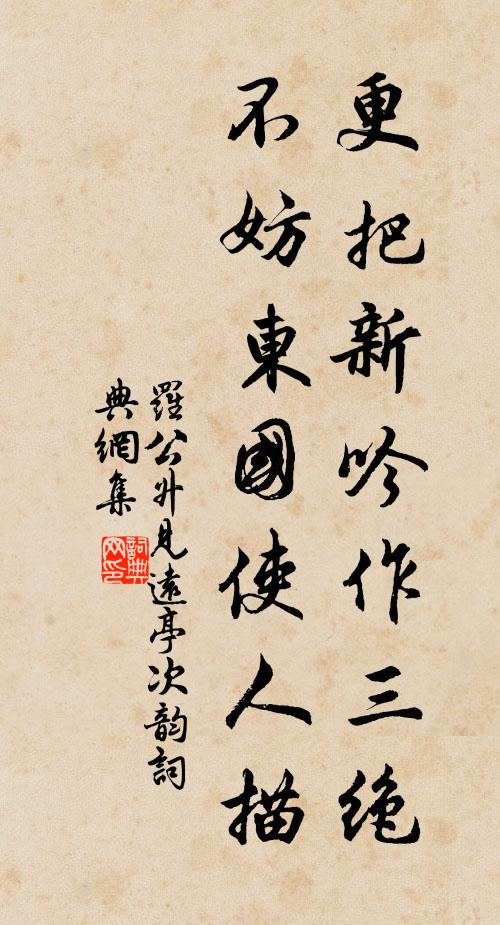 更把新吟作三絶
不妨東國使人描
羅公廾見遠亭次韵詞
典網集
詞典
网印